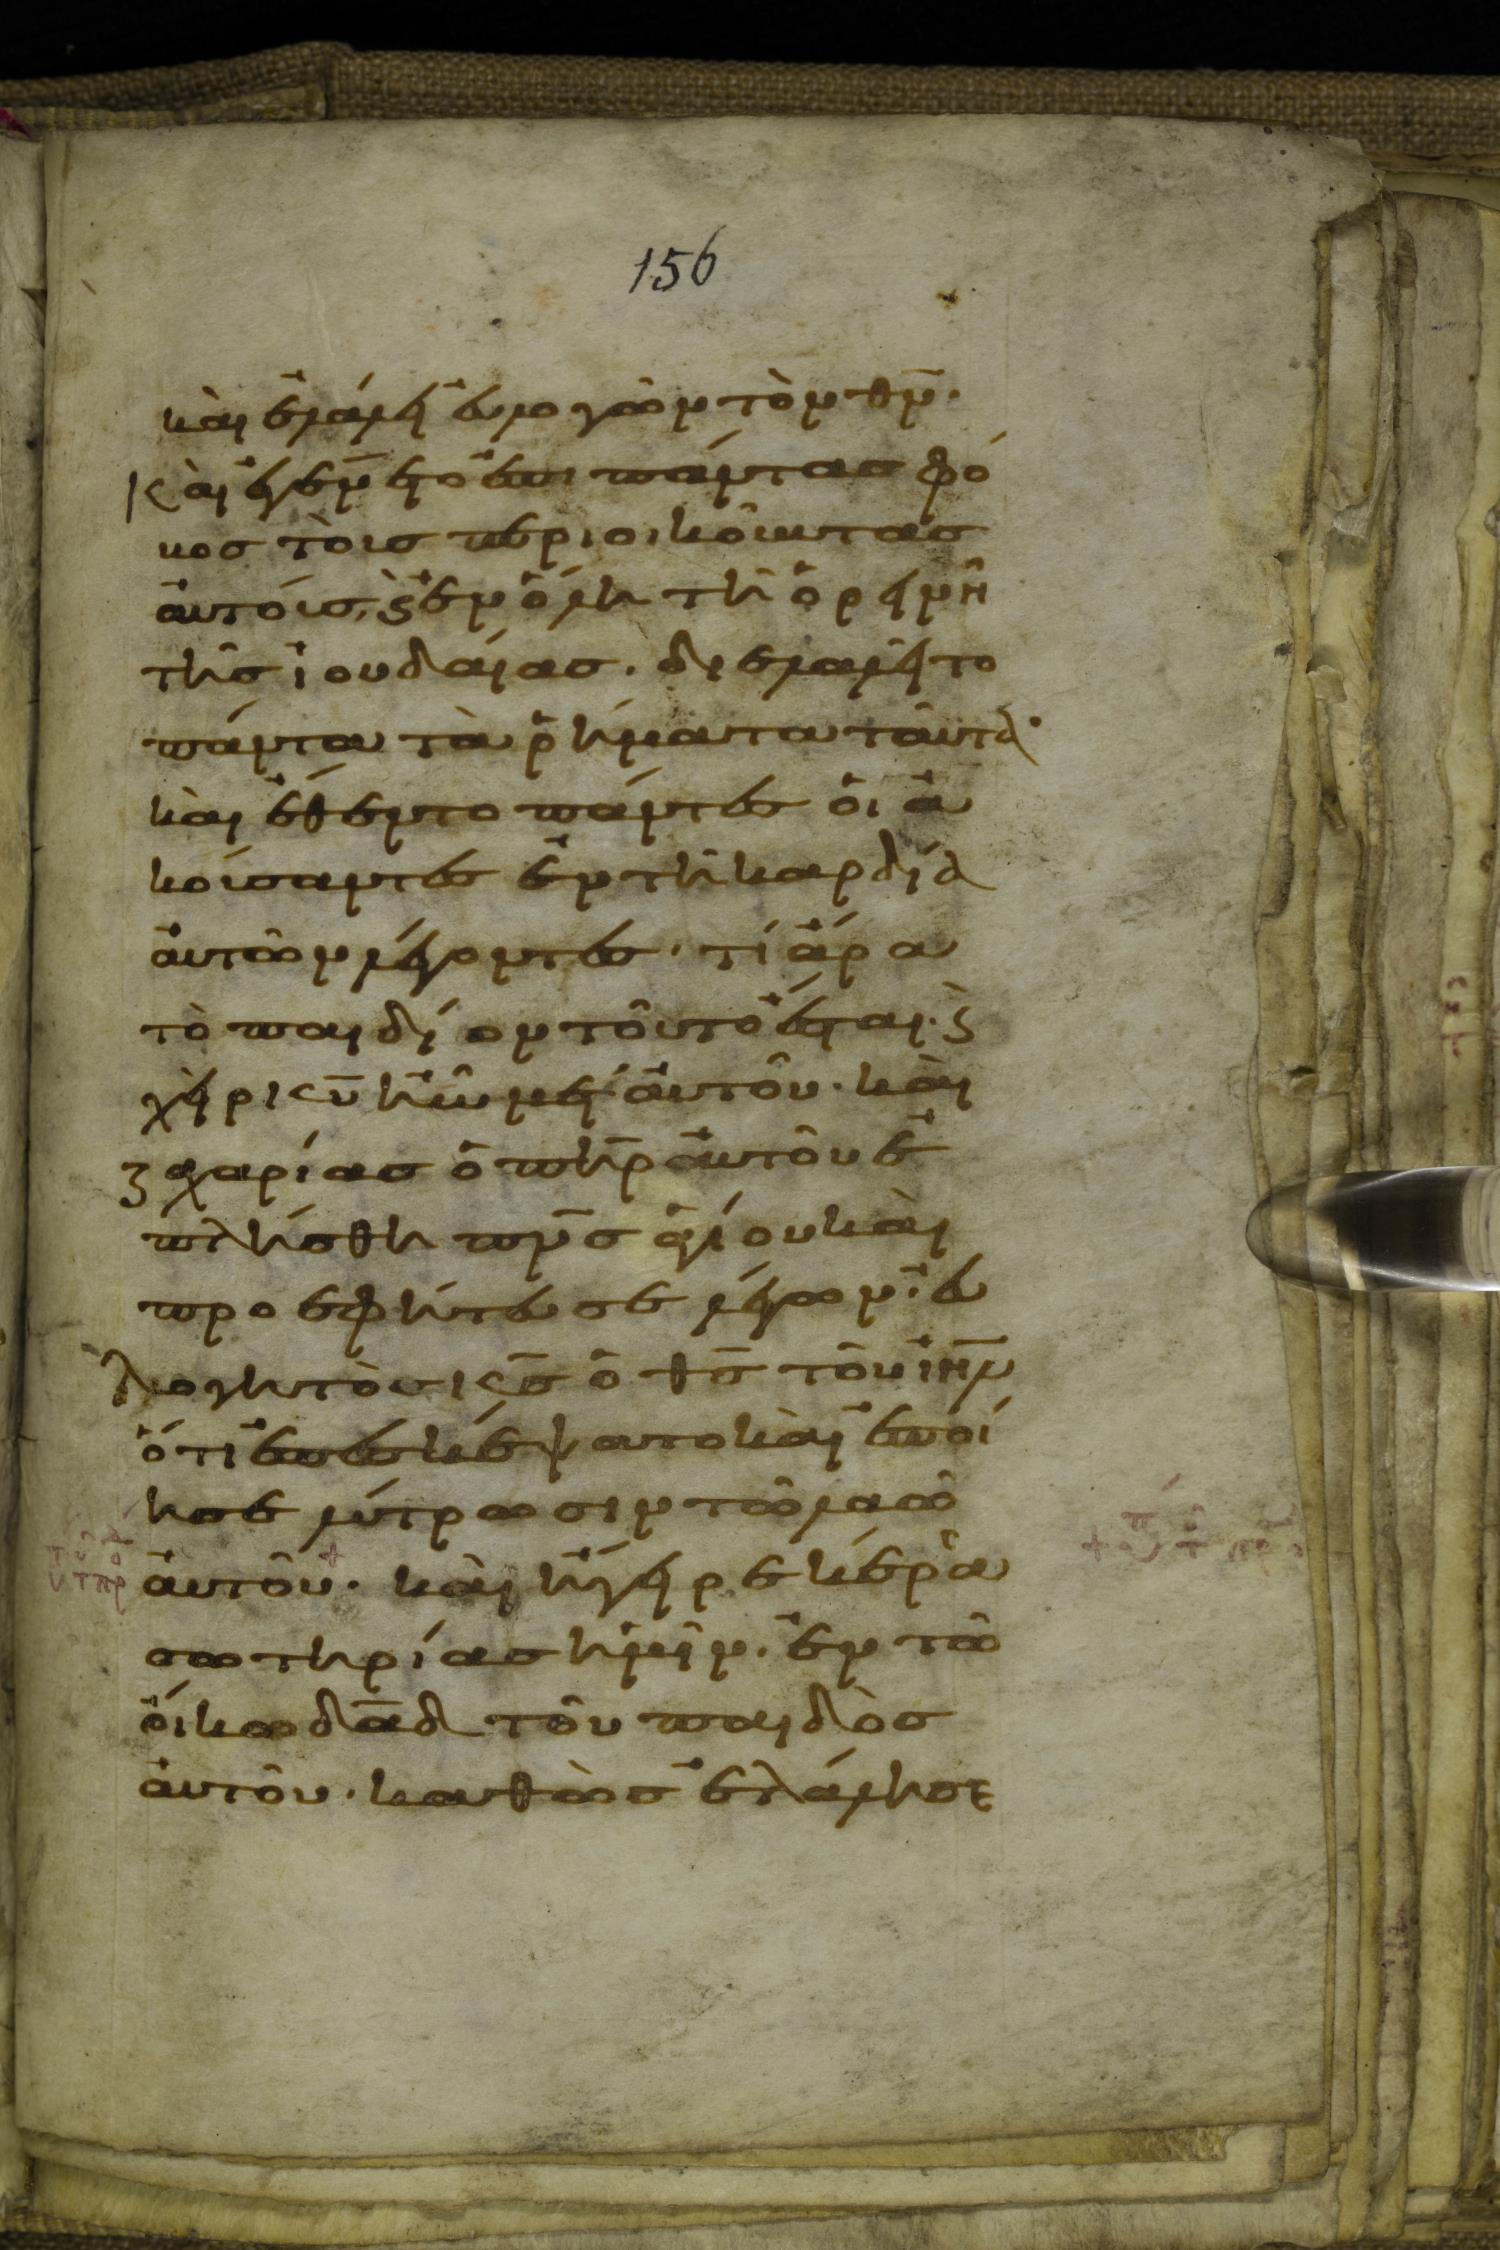 156
καὶ ἐλάλει ἐυλογῶν τὸν θν̅.
Κὰι ἐγένετο ἐπι πάντας φό
κοσ τὸισ περιοικοῦντασ
ἀυτόισ, ϗ ἐν ὅλη τῆ ὀρεινῆ
τῆσ ἰουδαίασ. διελαλεῖτο
πάντα τὰ ῥήματα ταῦτα.
κὰι ἔθεντο πάντεσ ὁι ἀ
κούσαντεσ ἐν τῆ καρδία
ἀυτῶν λέγοντεσ. τί ἄρα
τὸ παιδίον τοῦτο ἔσται. ϗ
χὲιρ κυ̅ ἦν μετ' ἀυτοῦ. κὰι
ζαχαρίασ ὁ πη̅ρ ἀυτοῦ ἐ
πλήσθη πν̅σ ἁγίου κὰι
προεφήτευσε λέγων. ἐυ
λογητὸσ κσ̅ ὁ θσ̅ τοῦ ιη̅λ
ὅτι ἐπεσκέψατο κὰι ἐποί
ησε λύτρωσιν τῶ λαῶ
ἀυτοῦ. κὰι ἤγειρε κέρα
σωτηρίασ ἡμῖν. ἐν τῶ
ὄικω δα̅δ τοῦ παιδὸσ
ἀυτοῦ. καθὼσ ἐλάλησε